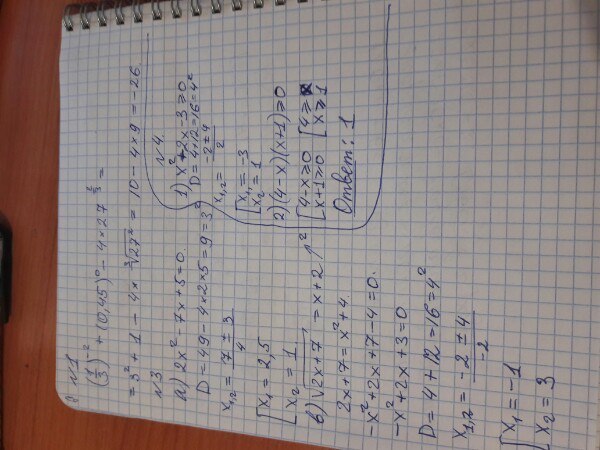 N1
(1/3)^-2 + (0,45)^0 - 4×27^(2/3) =
= 3^2 + 1 - 4× ∛27^2 = 10 - 4×9 = -26
N3
a) 2x^2 - 7x + 5 = 0.
D = 49 - 4×2×5 = 9 = 3^2
x1,2 = (7 ± 3)/4
[x1 = 2,5
[x2 = 1.
b) √2x+7 = x+2 /^2
2x+7 = x^2+4
-x^2+2x+7-4=0.
-x^2+2x+3=0
D = 4+12=16=4^2
x1,2 = (-2 ± 4)/-2
[x1 = -1
[x2 = 3
N4.
1) x^2+2x-3≥0
D = 4+12=16=4^2
x1,2 = (-2 ± 4)/2
[x1 = -3
[x2 = 1
2) (4-x)(x+1)≥0
[4-x≥0 [4≥x
[x+1≥0 [x≥1
Ответ: 1